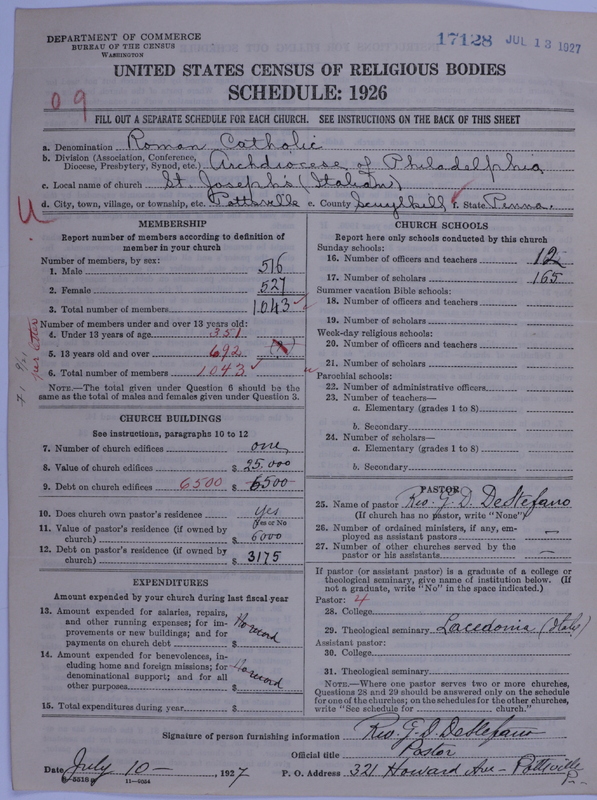 DEPARTMENT OF COMMERCE
BUREAU OF THE CENSUS
WASHINGTON
17128 JUL 13 1927
UNITED STATES CENSUS OF RELIGIOUS BODIES
SCHEDULE: 1926
09
FILL OUT A SEPARATE SCHEDULE FOR EACH CHURCH. SEE INSTRUCTIONS ON THE BACK OF THIS SHEET
a. Denomination Roman Catholic
b. Division (Association, Conference, Diocese, Presbytery, Synod, etc.) Archdiocese of Philadelphia
c. Local name of church St. Joseph's (Italian)
d. City, town, village, or township, etc. Pottsville e. County Scuylkill f. State Penna.
MEMBERSHIP
Report number of members according to definition of
member in your church
Number of members, by sex:
1. Male 516
2. Female 527
3. Total number of members 1043
Number of members under and over 13 years old:
4. Under 13 years of age 351
5. 13 years old and over 692
6. Total number of members 1043
per letter
NOTE.—The total given under Question 6 should be the
same as the total of males and females given under Question 3.
CHURCH BUILDINGS
See instructions, paragraphs 10 to 12
7. Number of church edifices one
8. Value of church edifices $ 25.000
9. Debt on church edifices 6500 $ 6500
10. Does church own pastor's residence yes
(Yes or No)
11. Value of pastor's residence (if owned by
church) $ 6000
12. Debt on pastor's residence (if owned by
church) $ 3175
EXPENDITURES
Amount expended by your church during last fiscal year
13. Amount expended for salaries, repairs,
and other running expenses; for im-
provements or new buildings; and for
payments on church debt $ No record
14. Amount expended for benevolences, in-
cluding home and foreign missions; for
denominational support; and for all
other purposes $ No record
15. Total expenditures during year $
CHURCH SCHOOLS
Report here only schools conducted by this church
Sunday schools:
16. Number of officers and teachers 12
17. Number of scholars 165
Summer vacation Bible schools:
18. Number of officers and teachers
19. Number of scholars
Week-day religious schools:
20. Number of officers and teachers
21. Number of scholars
Parochial schools:
22. Number of administrative officers
23. Number of teachers—
a. Elementary (grades 1 to 8)
b. Secondary
24. Number of scholars—
a. Elementary (grades 1 to 8)
b. Secondary
PASTOR
25. Name of pastor Rev. G. D. DeStefano
(If church has no pastor, write "None")
26. Number of ordained ministers, if any, em-
ployed as assistant pastors —
27. Number of other churches served by the
pastor or his assistants —
If pastor (or assistant pastor) is a graduate of a college or
theological seminary, give name of institution below. (If
not a graduate, write "No" in the space indicated.)
Pastor: 4
28. College
29. Theological seminary Lacedonia (Italy)
Assistant pastor:
30. College
31. Theological seminary
NOTE.—Where one pastor serves two or more churches,
Questions 28 and 29 should be answered only on the schedule
for one of the churches; on the schedules for the other churches,
write "See schedule for church."
Signature of person furnishing information Rev. G. D. DeStefano
Official title Pastor
Date July 10 — , 1927 P. O. Address 321 Howard Ave - Pottsville
Pa.
8-5518 11-9054